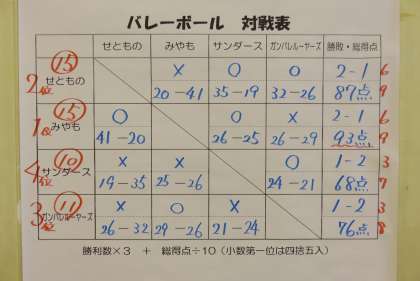 バレーボール 対戦表
せともの みやも サンダース ガンバレルーヤーズ 勝敗・総得点
2位 ⑮ せともの × ○ ○ 2-1 6
20-41 35-19 32-26 87点 9
1位 ⑮ みやも ○ ○ × 2-1 6
41-20 26-25 26-29 93点 9
4位 ⑩ サンダース × × ○ 1-2 3
19-35 25-26 24-21 68点 7
3位 ⑪ ガンバレルーヤーズ × ○ × 1-2 3
26-32 29-26 21-24 76点 8
勝利数×3 + 総得点÷10(小数第一位は四捨五入)